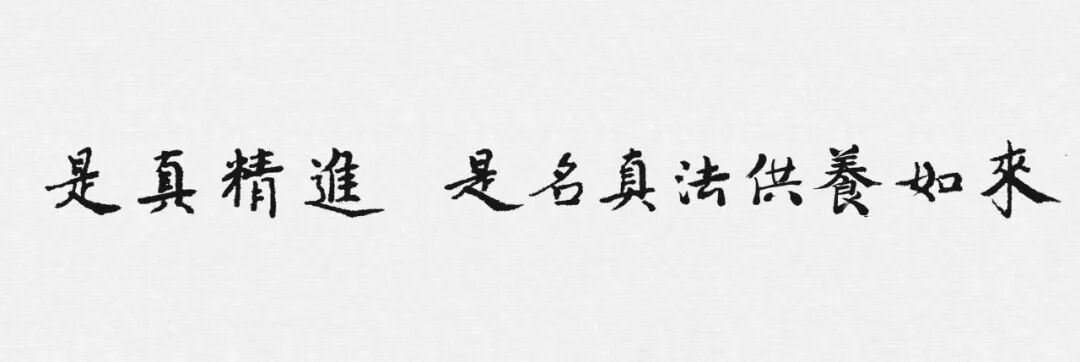 是真精進 是名真法供養如來